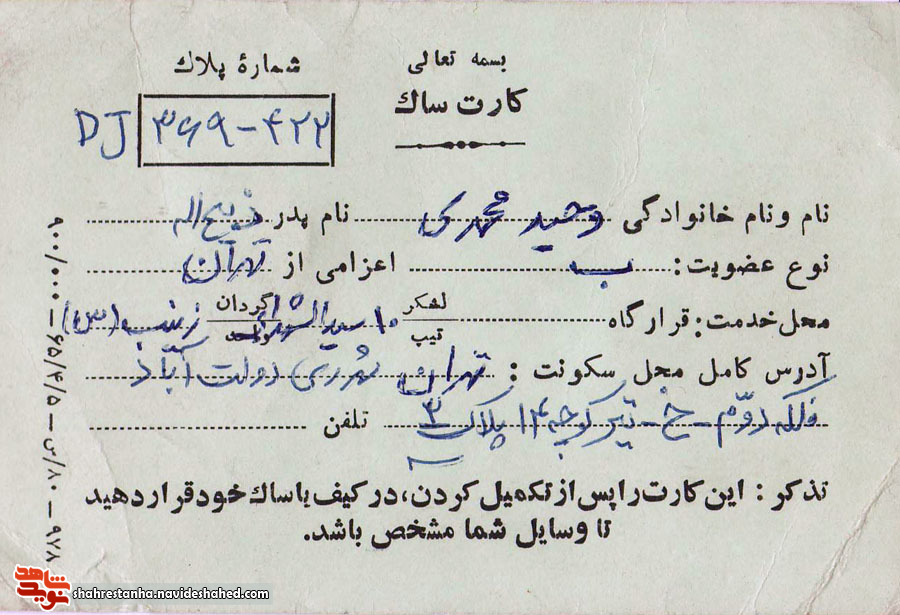 بسمه تعالی
کارت ساک
شمارهٔ پلاک
DJ ۳۶۹-۴۲۲
نام و نام خانوادگی وحید محمدی نام پدر ذبیح اله
نوع عضویت: ب اعزامی از تهران
محل خدمت: قرارگاه لشکر تیپ ۱۰ سیدالشهدا گردان واحد زینب (س)
آدرس کامل محل سکونت: تهران شهرری دولت آباد
فلکه دوم - خ - تیر کوچه ۱۴ پلاک ۳ تلفن
تذکر: این کارت را پس از تکمیل کردن، در کیف یا ساک خود قرار دهید
تا وسایل شما مشخص باشد.
۹۰۰/۰۰۰ - ۶۵/۴/۵ - س/۸۰ - ۹۷۸
شاهد
نوید
shahrestanha.navideshahed.com